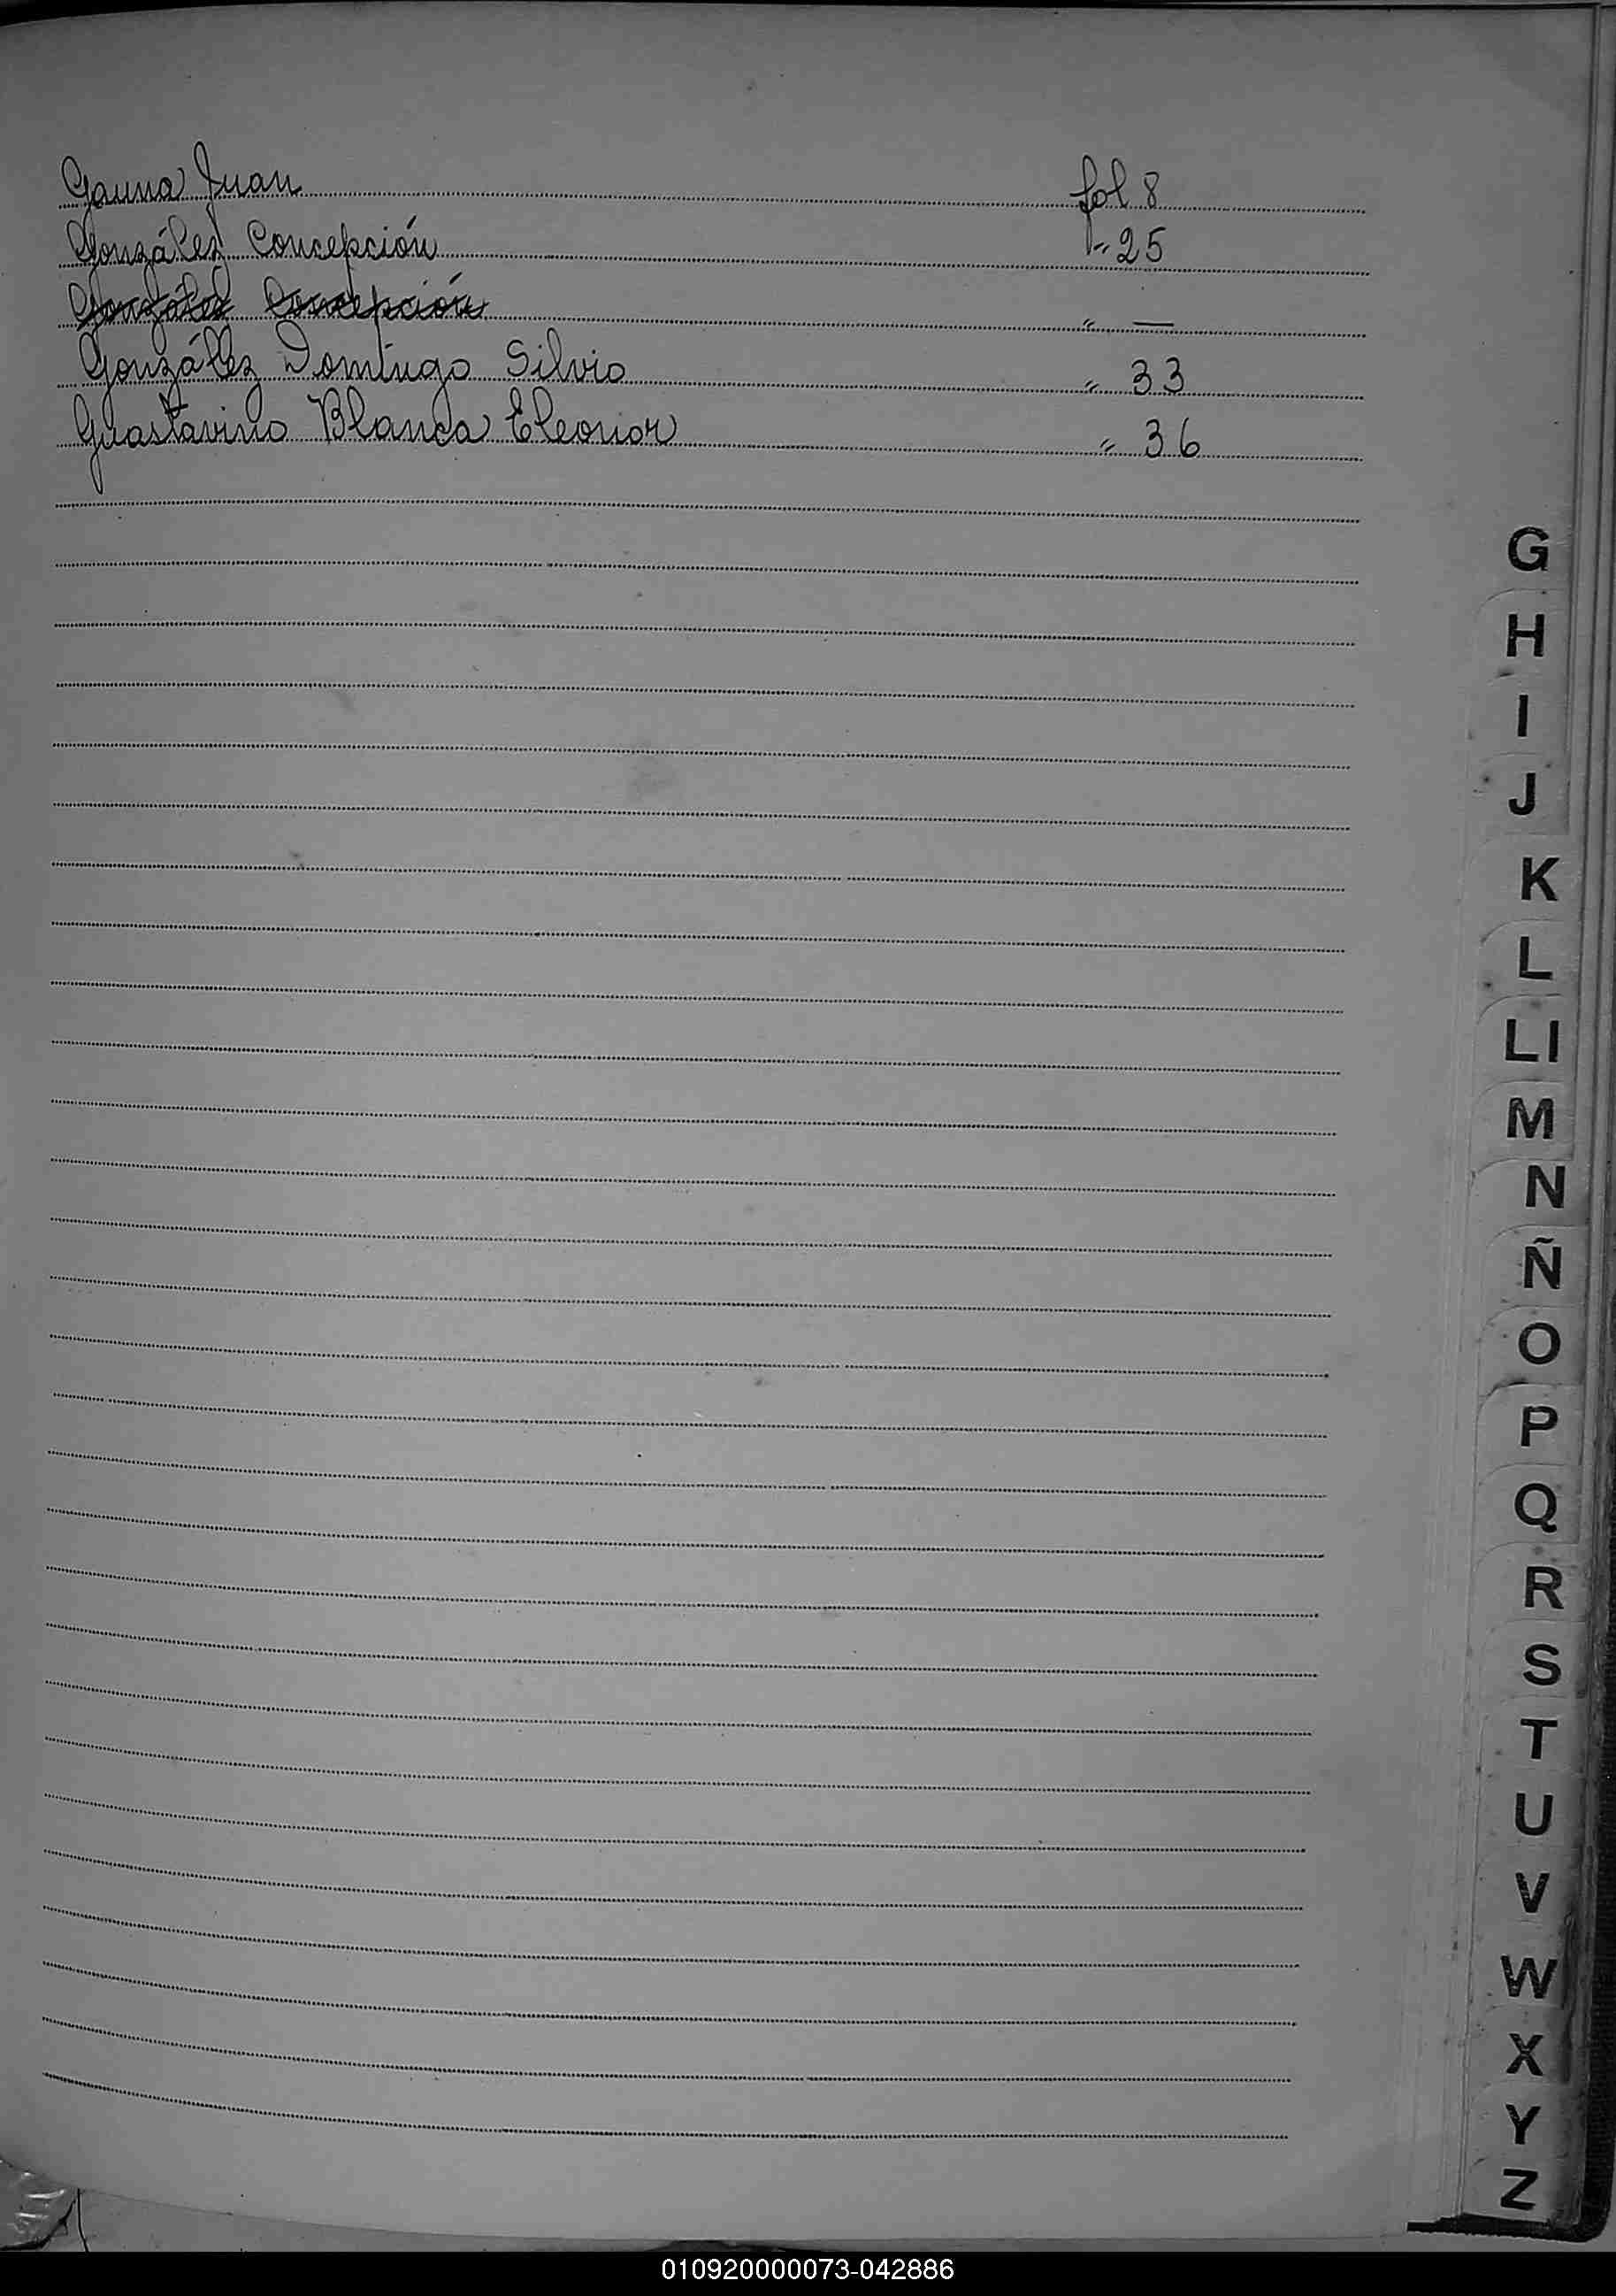 Gauna Juan fol 8
González Concepción " 25
González Concepción " —
González Domingo Silvio " 33
Guastavino Blanca Eleonor " 36
G
H
I
J
K
L
Ll
M
N
Ñ
O
P
Q
R
S
T
U
V
W
X
Y
Z
010920000073-042886